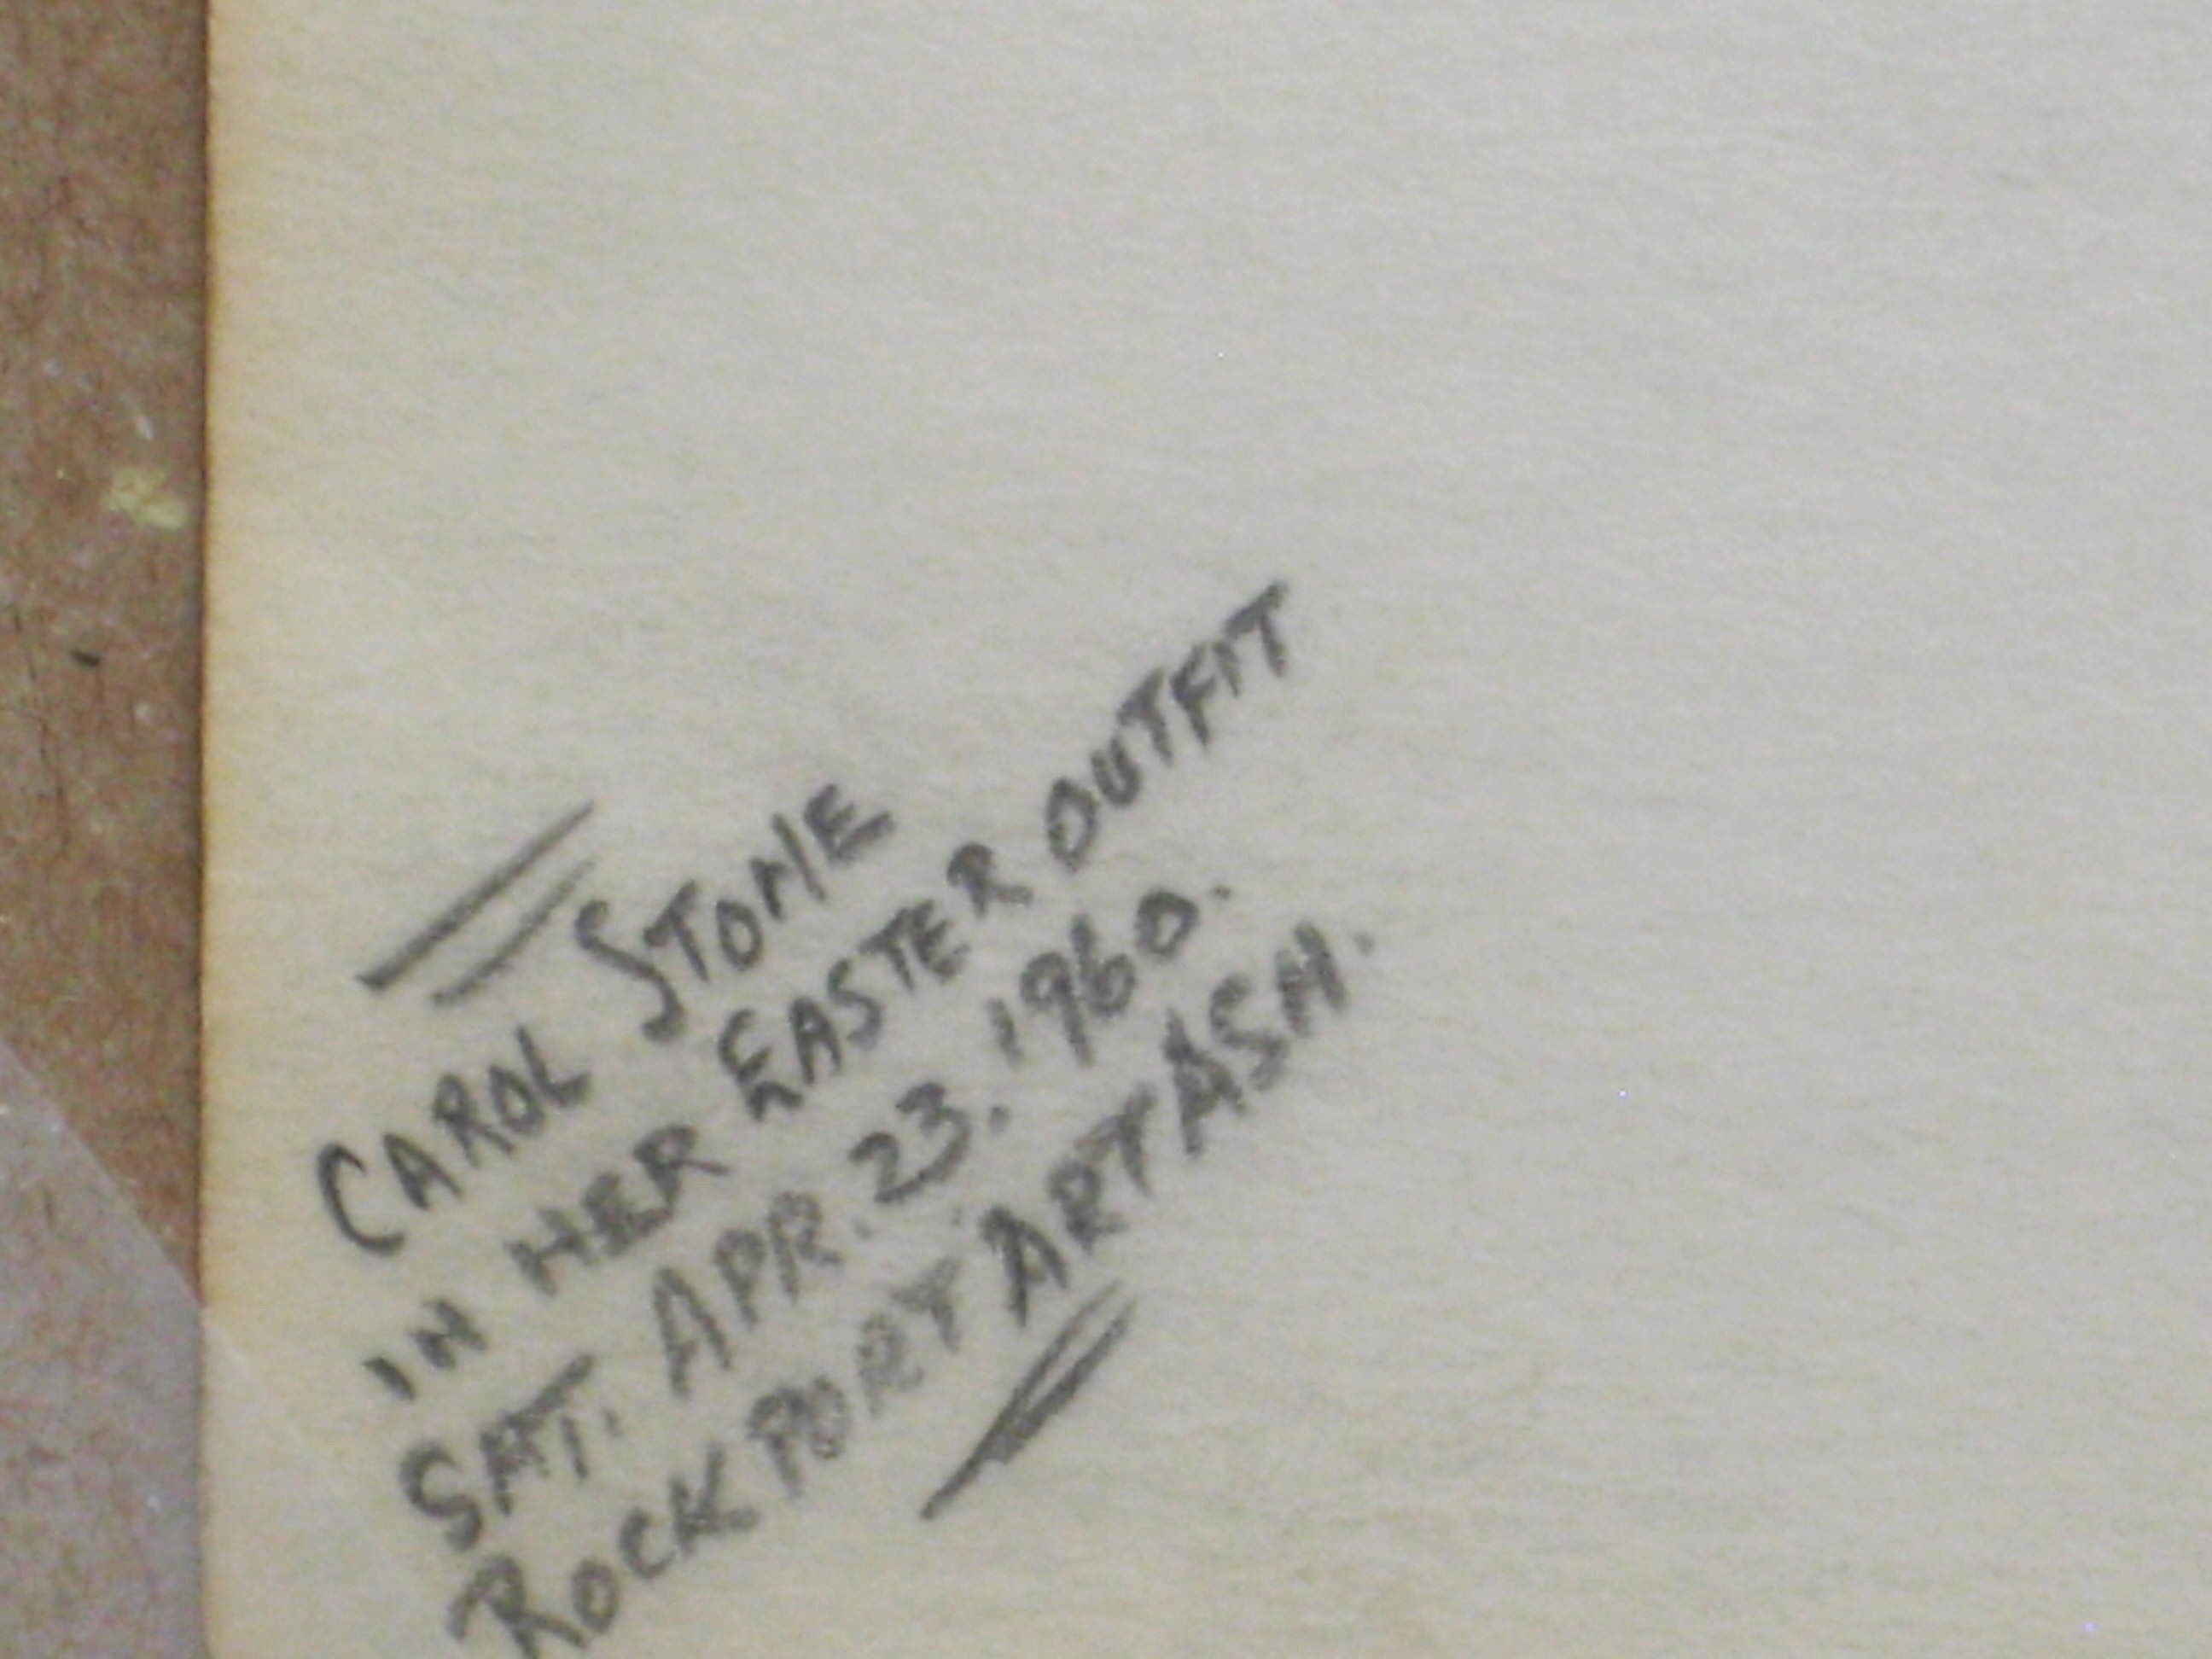 CAROL STONE
IN HER EASTER OUTFIT
SAT. APR. 23. 1960.
ROCKPORT ART ASN.